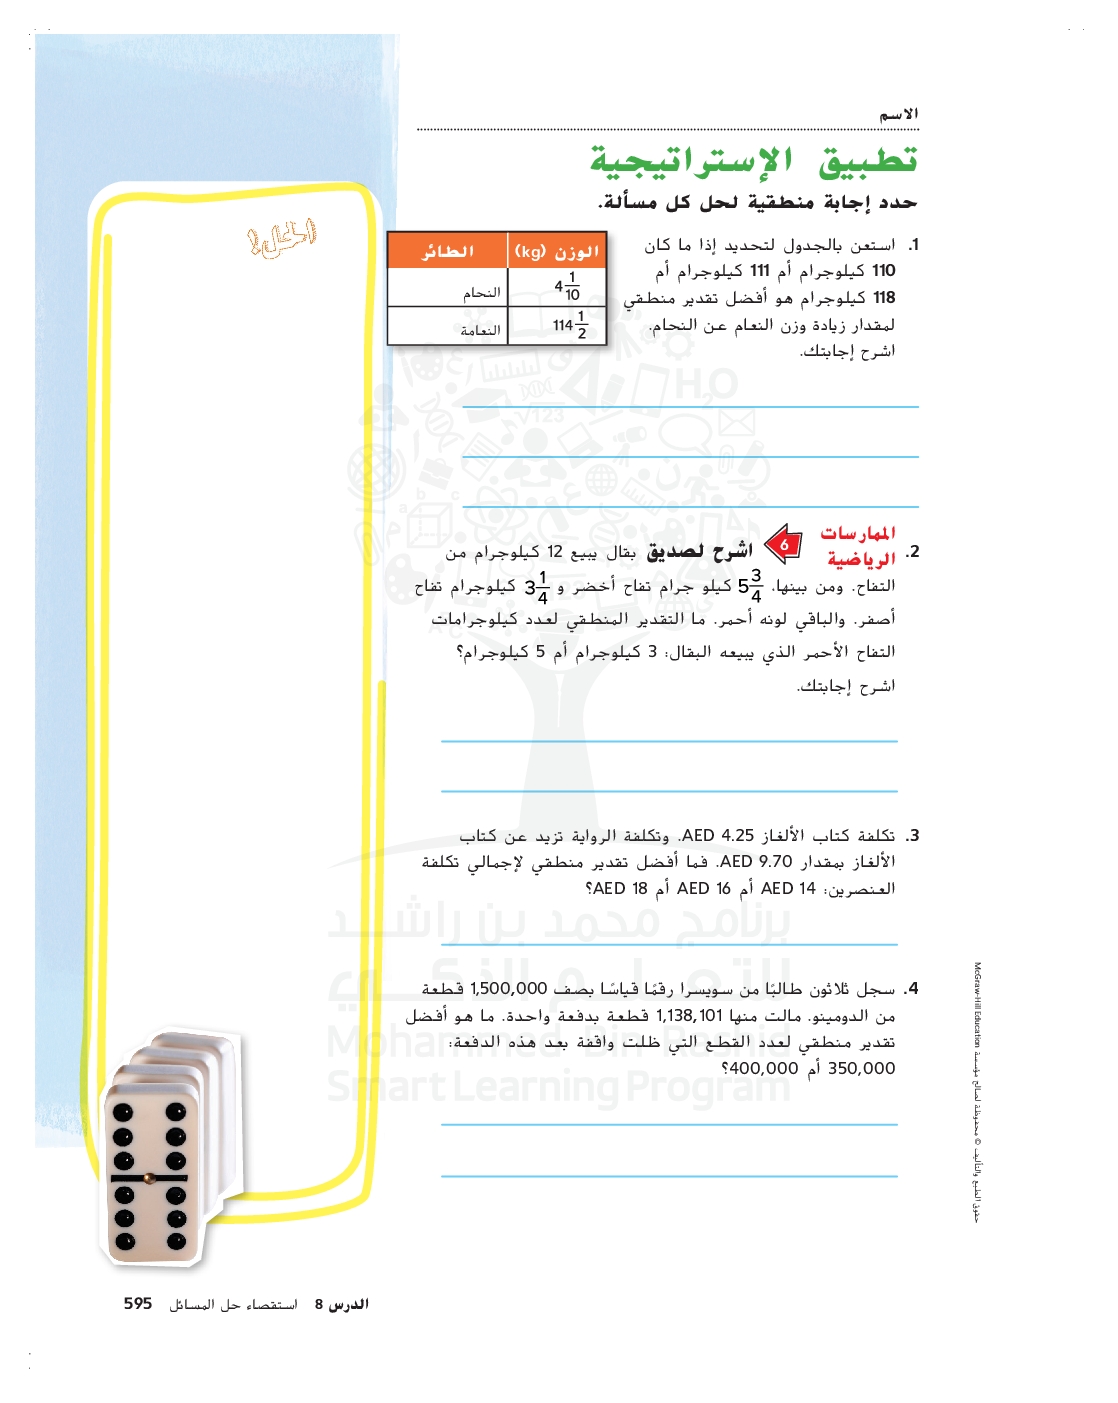 الاسم
تطبيق الإستراتيجية
حدد إجابة منطقية لحل كل مسألة.
1. استعن بالجدول لتحديد إذا ما كان
110 كيلوجرام أم 111 كيلوجرام أم
118 كيلوجرام هو أفضل تقدير منطقي
لمقدار زيادة وزن النعام عن النحام.
اشرح إجابتك.
الطائر الوزن (kg)
النحام 4 1/10
النعامة 114 1/2
الحل!
2. الممارسات الرياضية 6 اشرح لصديق بقال يبيع 12 كيلوجرام من
التفاح. ومن بينها، 5 3/4 كيلو جرام تفاح أخضر و 3 1/4 كيلوجرام تفاح
أصفر. والباقي لونه أحمر. ما التقدير المنطقي لعدد كيلوجرامات
التفاح الأحمر الذي يبيعه البقال: 3 كيلوجرام أم 5 كيلوجرام؟
اشرح إجابتك.
3. تكلفة كتاب الألغاز AED 4.25. وتكلفة الرواية تزيد عن كتاب
الألغاز بمقدار AED 9.70. فما أفضل تقدير منطقي لإجمالي تكلفة
العنصرين: AED 14 أم AED 16 أم AED 18؟
4. سجل ثلاثون طالبًا من سويسرا رقمًا قياسًا بصف 1,500,000 قطعة
من الدومينو. مالت منها 1,138,101 قطعة بدفعة واحدة. ما هو أفضل
تقدير منطقي لعدد القطع التي ظلت واقفة بعد هذه الدفعة:
350,000 أم 400,000؟
برنامج محمد بن راشد
للتعلم الذكي
Mohammed Bin Rashid
Smart Learning Program
حقوق الطبع والتأليف © محفوظة لصالح مؤسسة McGraw-Hill Education
الدرس 8 استقصاء حل المسائل 595